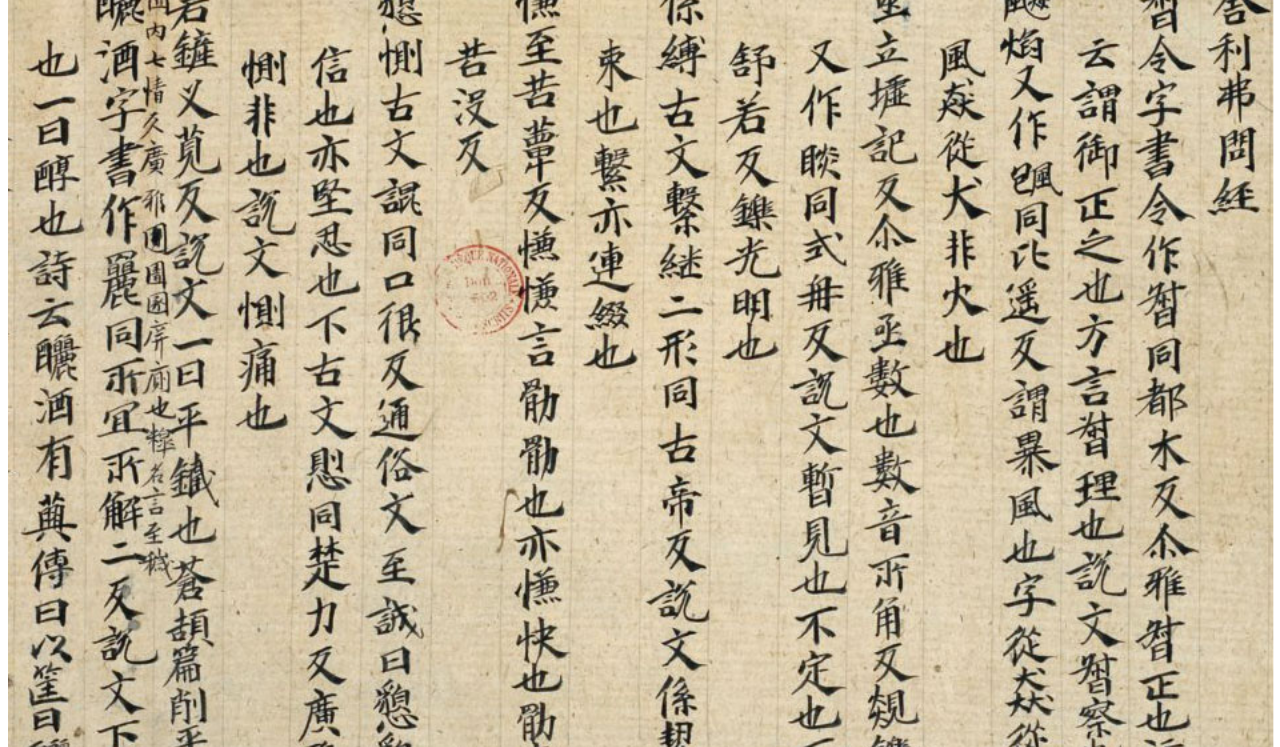 舍利弗問經
督令字書令作督同都木反尒雅督正也
云謂御正之也方言督理也說文督察
飈焰又作同比遥反謂暴風也字從犬猋從
風猋從犬非火也
亟立墟記反尒雅亟數也數音所角反覢鑠
又作睒同式冉反說文暫見也不定也
舒若反鑠光明也
係縛古文繫継二形同古帝反說文係絜
束也繫亦連綴也
慊至苦蕈反慊慊言劬劬也亦慊快也劬
苦沒反
懇惻古文詪同口很反通俗文至誠曰懇懇
信也亦堅忍也下古文同楚力反廣
惻非也說文惻痛也
若鏟义莧反說文一曰平鐵也蒼頡篇削平
内七情久廣雅圊圂庰廁也釋名言至穢
釃酒字書作麗同所宜所解二反說文下
也一曰醇也詩云釃酒有藇傳曰以筐曰釃